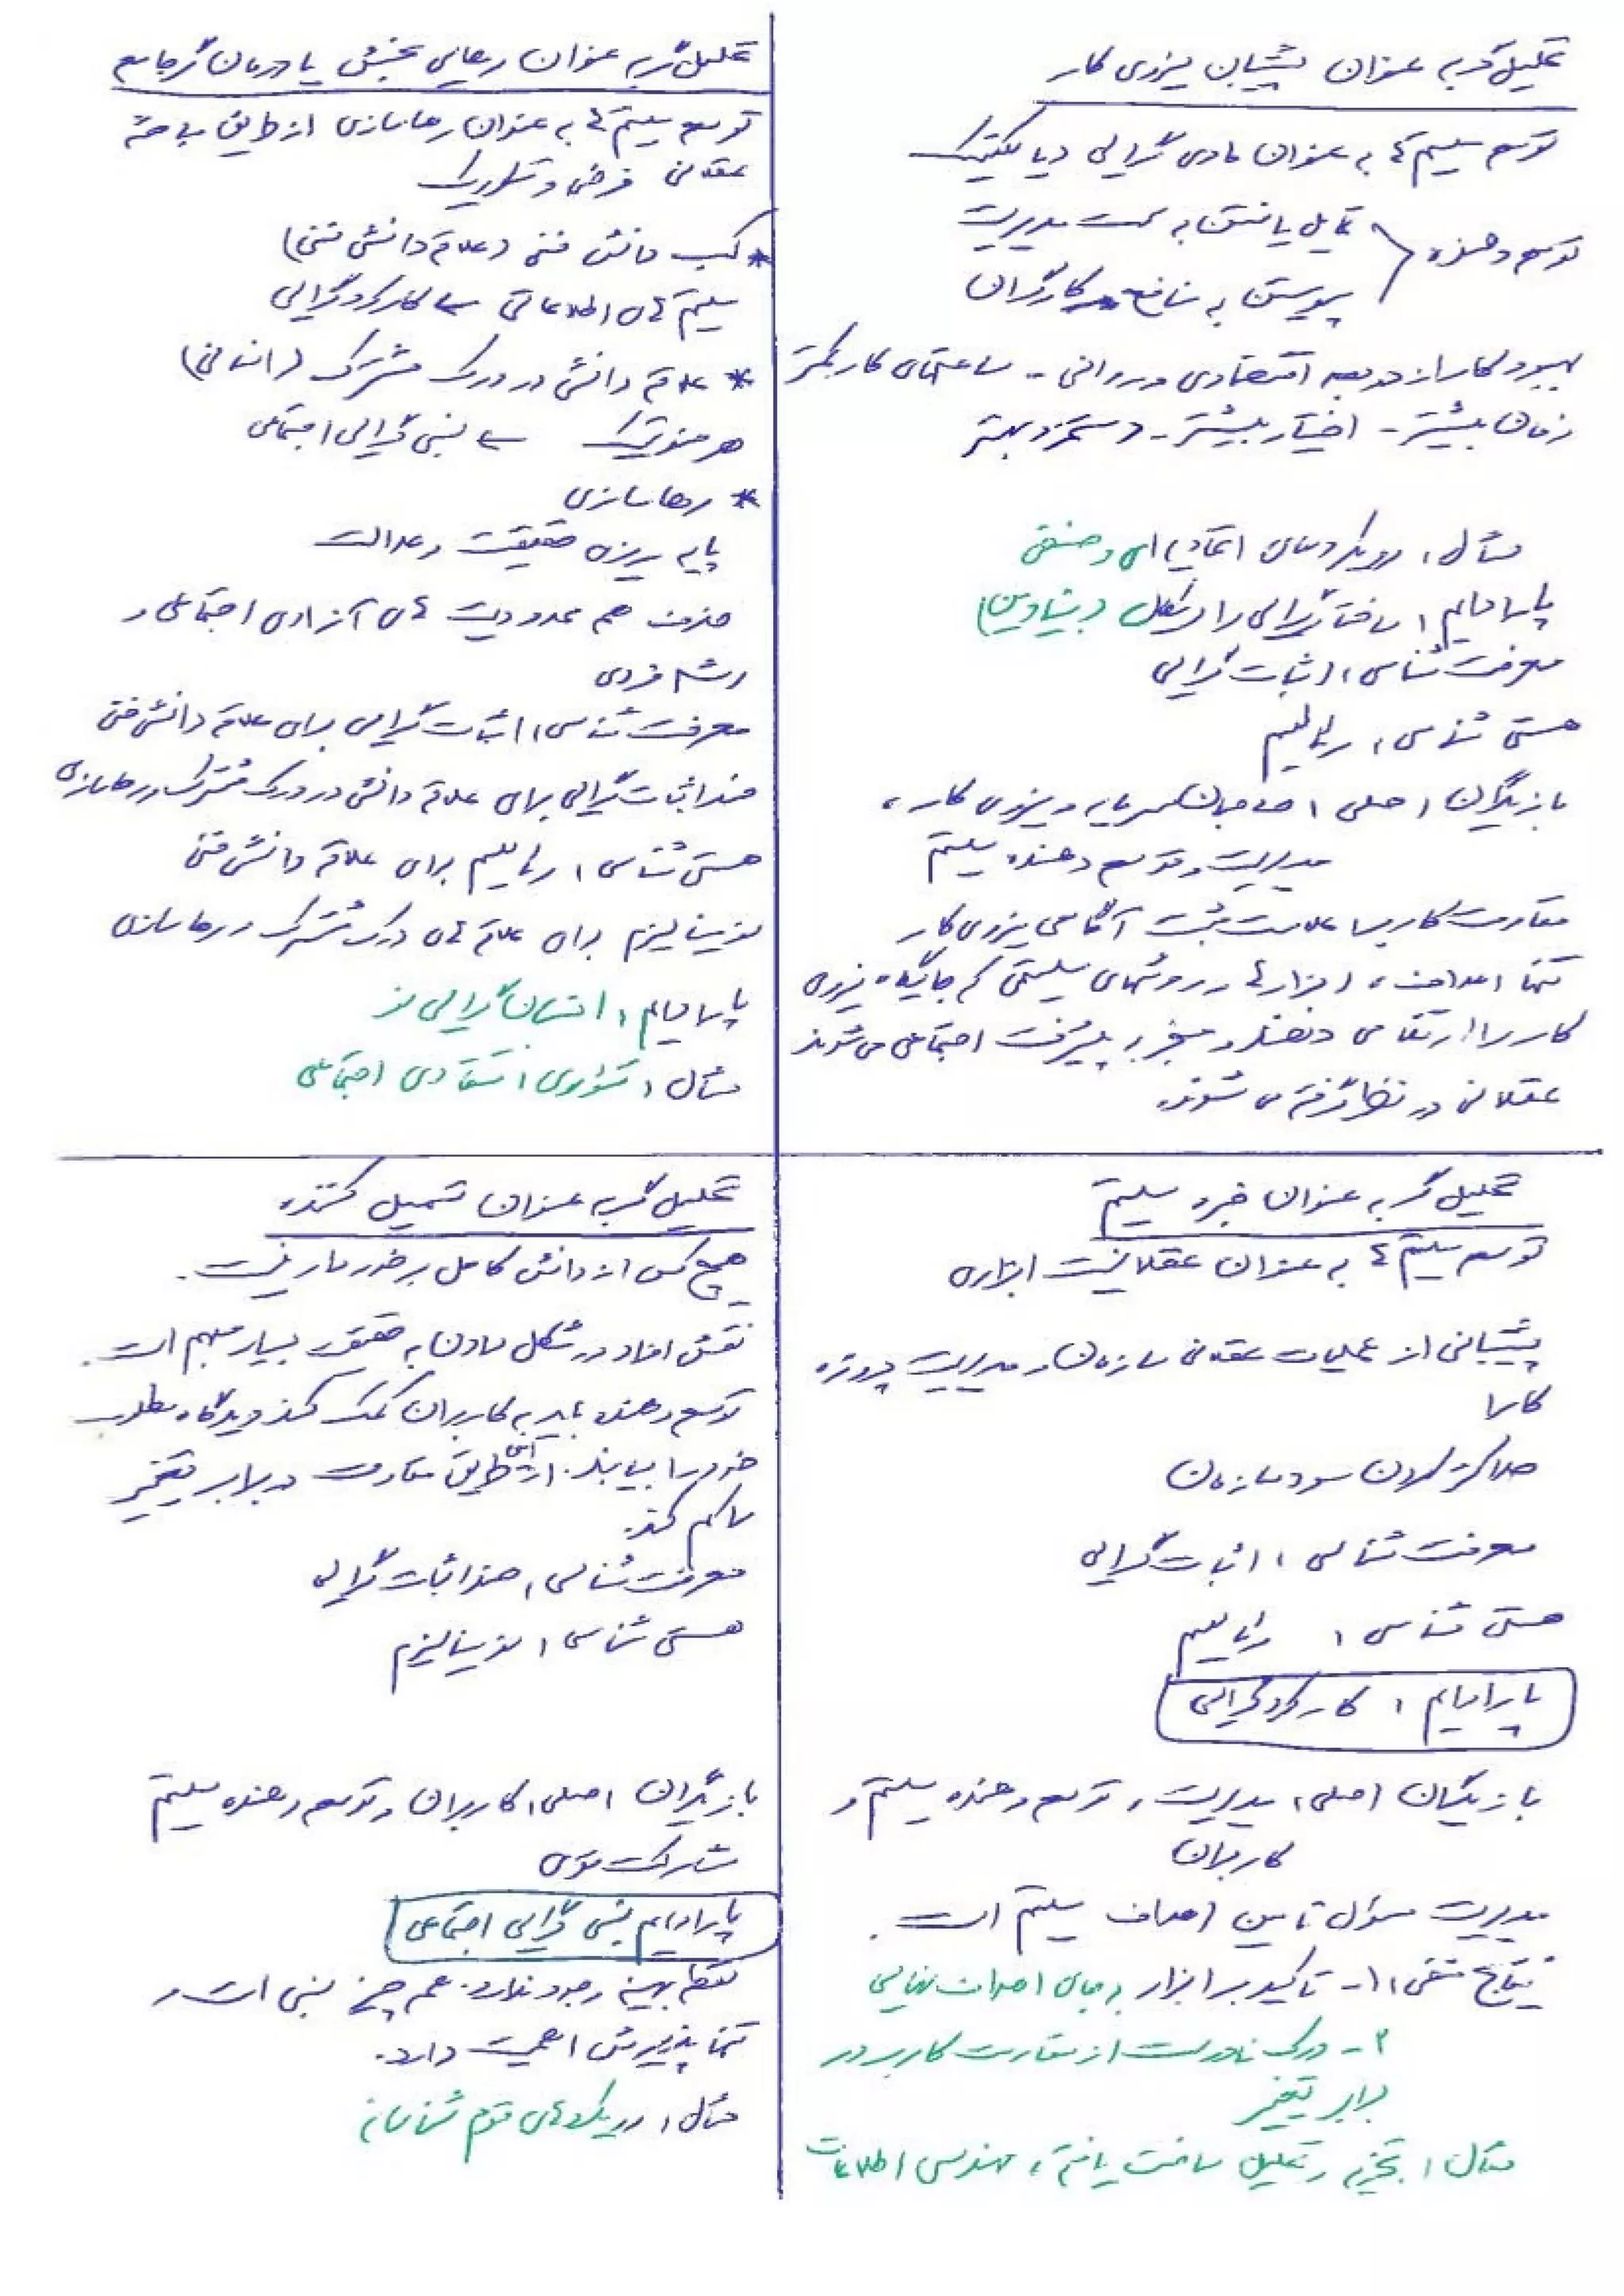 تحلیل گر به عنوان پشتیبان نیروی کار
توسعه سیستم ها به عنوان مادی گرایی دیالکتیک
توسعه دهنده
تمایل یافتن به سمت مدیریت
پیوستن به منافع کارگران
بهبود کار از دو بعد اقتصادی و روانی - ساعتهای کار کمتر
زمان بیشتر - اختیار بیشتر - دستمزد بهتر
مثال: رویکردهای اتحادیه ای و صنفی
پارادایم: ساختارگرایی رادیکال (بنیادین)
معرفت شناسی: اثبات گرایی
هستی شناسی: رئالیسم
بازیگران اصلی: صاحبان سرمایه و نیروی کار،
مدیریت و توسعه دهنده سیستم
مقاومت کاربر علامت مثبت آگاهی نیروی کار
تنها اهداف، ابزارها و روشهای سیستمی که جایگاه نیروی
کار را ارتقا می دهند و منجر به پیشرفت اجتماعی می شوند
عقلانی در نظر گرفته می شوند.
تحلیل گر به عنوان رهایی بخش یا درمان گر جامعه
توسعه سیستم ها به عنوان رهاسازی از طریق مباحثه
عقلانی فرضی و تئوریک
* کسب دانش فنی (علاقه دانشی فنی)
سیستم های اطلاعاتی ← کارکردگرایی
* علاقه دانشی در درک مشترک (انسانی)
هرمنوتیک ← نسبی گرایی اجتماعی
* رهاسازی
پایه ریزی حقیقت و عدالت
حذف همه محدودیت های آزادی اجتماعی و
رشد فردی
معرفت شناسی: اثبات گرایی برای علاقه دانشی فنی
ضد اثبات گرایی برای علاقه دانشی در درک مشترک و رهاسازی
هستی شناسی: رئالیسم برای علاقه دانشی فنی
نومینالیزم برای علاقه های درک مشترک و رهاسازی
پارادایم: انسان گرایی نو
مثال: تئوری انتقادی اجتماعی
تحلیل گر به عنوان خبره سیستم
توسعه سیستم ها به عنوان عقلانیت ابزاری
پشتیبانی از عملیات عقلانی سازمان و مدیریت پروژه
کارا
حداکثر کردن سود سازمان
معرفت شناسی: اثبات گرایی
هستی شناسی: رئالیسم
پارادایم: کارکردگرایی
بازیگران اصلی: مدیریت، توسعه دهنده سیستم و
کاربران
مدیریت مسئول تامین اهداف سیستم است.
نتایج منفی: ۱- تاکید بر ابزار به جای اهداف نهایی
۲- درک نادرست از مقاومت کاربر در
برابر تغییر
مثال: تجزیه و تحلیل ساخت یافته، مهندسی اطلاعات
تحلیل گر به عنوان تسهیل کننده
هیچ کس از دانش کامل برخوردار نیست.
نقش افراد در شکل دادن به حقیقت بسیار مبهم است.
توسعه دهنده باید به کاربران کمک کند دیدگاه مطلوب
خود را بیابند. از این طریق مقاومت در برابر تغییر
را کم کند.
معرفت شناسی: ضد اثبات گرایی
هستی شناسی: نومینالیزم
بازیگران اصلی: کاربران و توسعه دهنده سیستم
مشارکت قوی
پارادایم نسبی گرایی اجتماعی
نقطه بهینه وجود ندارد. همه چیز نسبی است و
تنها پذیرش اهمیت دارد.
مثال: رویکردهای قوم شناسانه